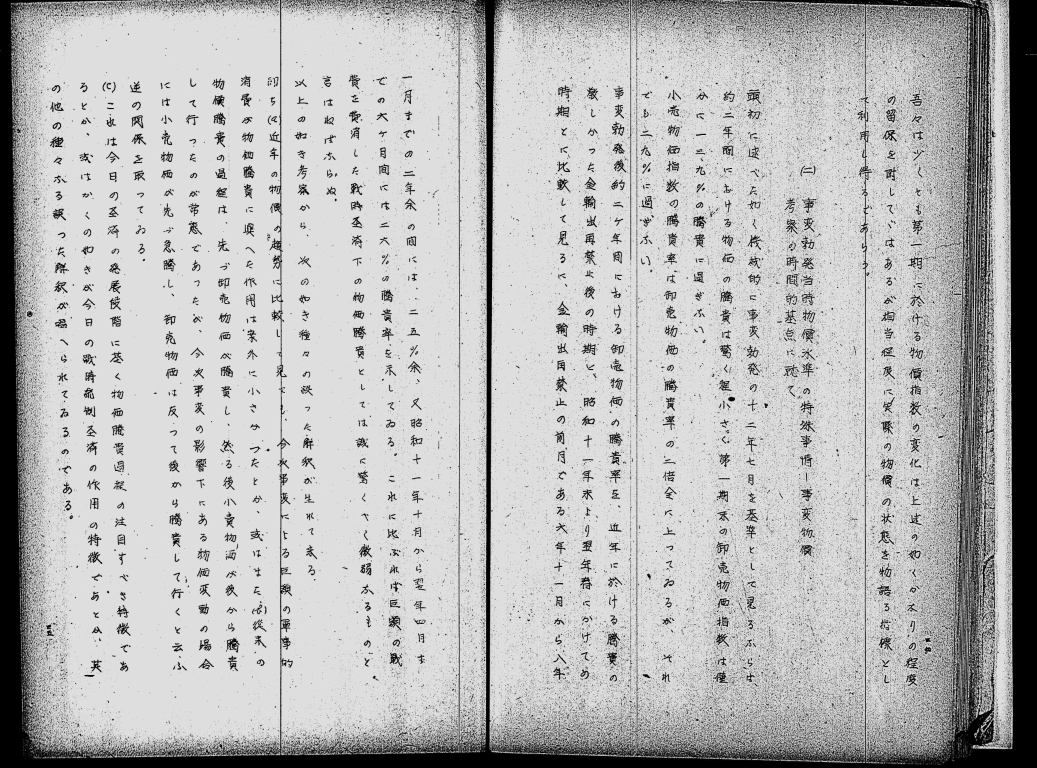 吾々は少くとも第一期に於ける物價指数の変化は上述の如くかなりの程度
の留保を附してではあるが相当程度に実際の物價の状態を物語る指標とし
て利用し得るであらう。
(二) 事変勃発当時物價水準の特殊事情―事変物價
考察の時間的基点に就て
頭初に述べた如く機械的に事変勃発の十二年七月を基準として見るならば、
約二年間における物価の騰貴は驚く程小さく第一期末の卸売物価指数は僅
かに一三、九%の騰貴に過ぎない。
小売物価指数の騰貴率は卸売物価の騰貴率の二倍余に上つてゐるが それ
でも二九%に過ぎない。
事変勃発後約二ケ年間における卸売物価の騰貴率を、近年に於ける騰貴の
激しかつた金輸出再禁止後の時期と、昭和十一年末より翌年春にかけての
時期とに比較して見るに、金輸出再禁止の前月である六年十一月から八年
一月までの二年余の間には二五%余、又昭和十一年十月から翌年四月ま
での六ケ月間には二六%の騰貴率を示してゐる。これに比ぶれば巨額の戰
費を費消した戰時经済下の物価騰貴としては誠に驚くべく微弱なるものと
言はねばならぬ。
以上の如き考察から、次の如き種々の誤つた解釈が生れて来る。
即ち(イ)近年の物價の趨勢に比較して見ても、今次事変による巨額の軍事的
消費が物価騰貴に與へた作用は案外に小さかつたとか、或はまた(ロ)従来の
物價騰貴の過程は、先づ卸売物価が騰貴し、然る後小賣物価が後から騰貴
して行つたのが常態であつたが、今次事変の影響下にある物価変動の場合
には小売物価が先づ急騰し、卸売物価は反つて後から騰貴して行くと云ふ
逆の関係を取つてゐる。
(C)これは今日の经済の発展段階に基く物価騰貴過程の注目すべき特徴であ
るとか、或はかくの如きが今日の戰時統制经済の作用の特徴であるとか、其
の他の種々なる誤つた解釈が唱へられてゐるのである。